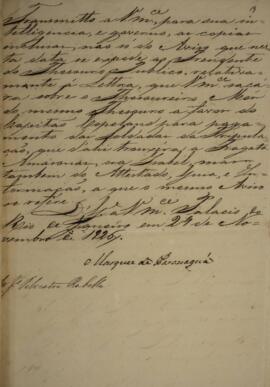 3
Transmitto a Vmce, para sua in-
telligencia, e governo, as copias
inclusas, não só do Aviso que nes-
ta data se expede ao Presidente
do Thesouro Publico, relativa-
mente á Lettra, que Vmce saca-
ra sobre o Thesoureiro Mór
do mesmo Thesouro a favor do
Capitão para paga-
mento das Soldadas da Tripula-
ção, que trouxera, a Fragata
Amazonas, ou Isabel, mas
tambem do Attestado, Guia, e In-
formação, a que o mesmo Aviso
se refere.
D. Ge. a Vmce. Palacio do
Rio de Janeiro em 29 de No-
vembro de 1826.
O Marquez de Paranaguá
Sr. Silvestre Rebello